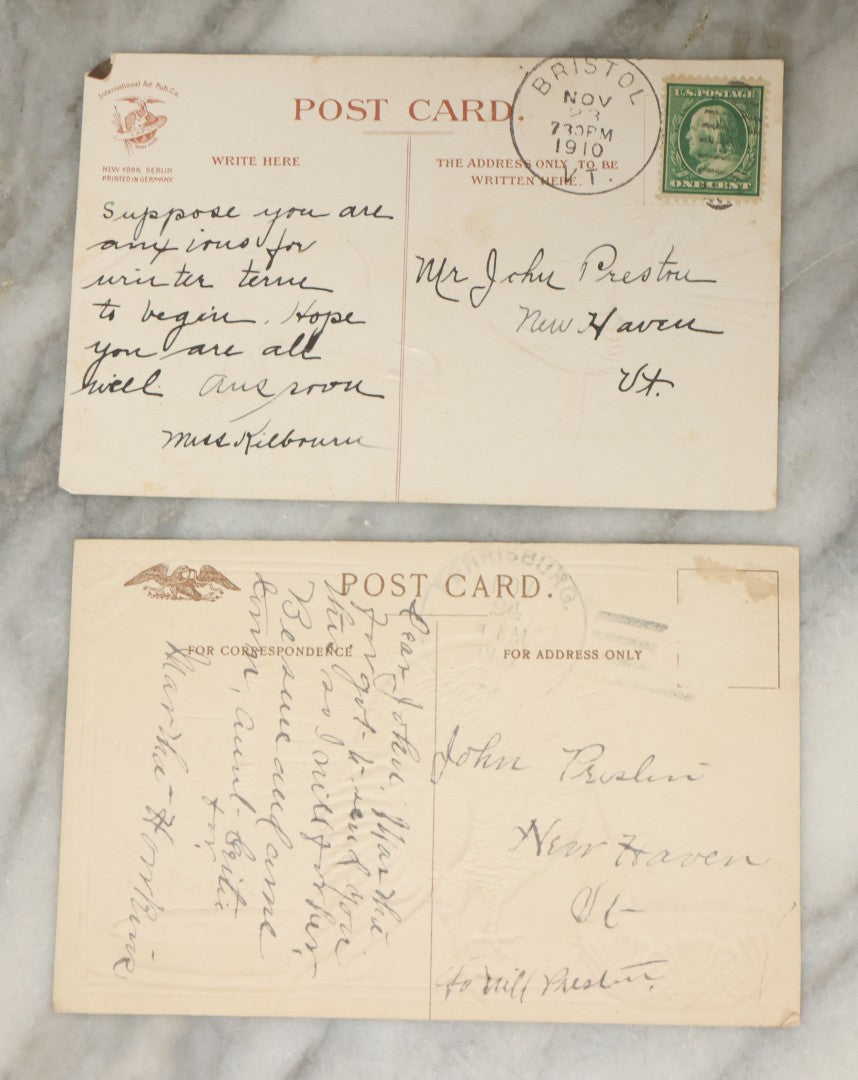 International Art Pub. Co.
NEW YORK BERLIN
PRINTED IN GERMANY
POST CARD.
BRISTOL
NOV
23
730PM
1910
VT.
U.S. POSTAGE
ONE CENT
WRITE HERE
THE ADDRESS ONLY TO BE
WRITTEN HERE.
Suppose you are
anxious for
winter term
to begin. Hope
you are all
well. Ans soon
Miss Kilbourn
Mr John Preston
New Haven
Vt.
POST CARD.
FOR CORRESPONDENCE
FOR ADDRESS ONLY
RRISBURG.
24
Dear John, Martha
forgot to send you
this so I will for her,
Be sure and come
down, aunt
for
Martha Hawkins
John Preston
New Haven
Vt
Preston